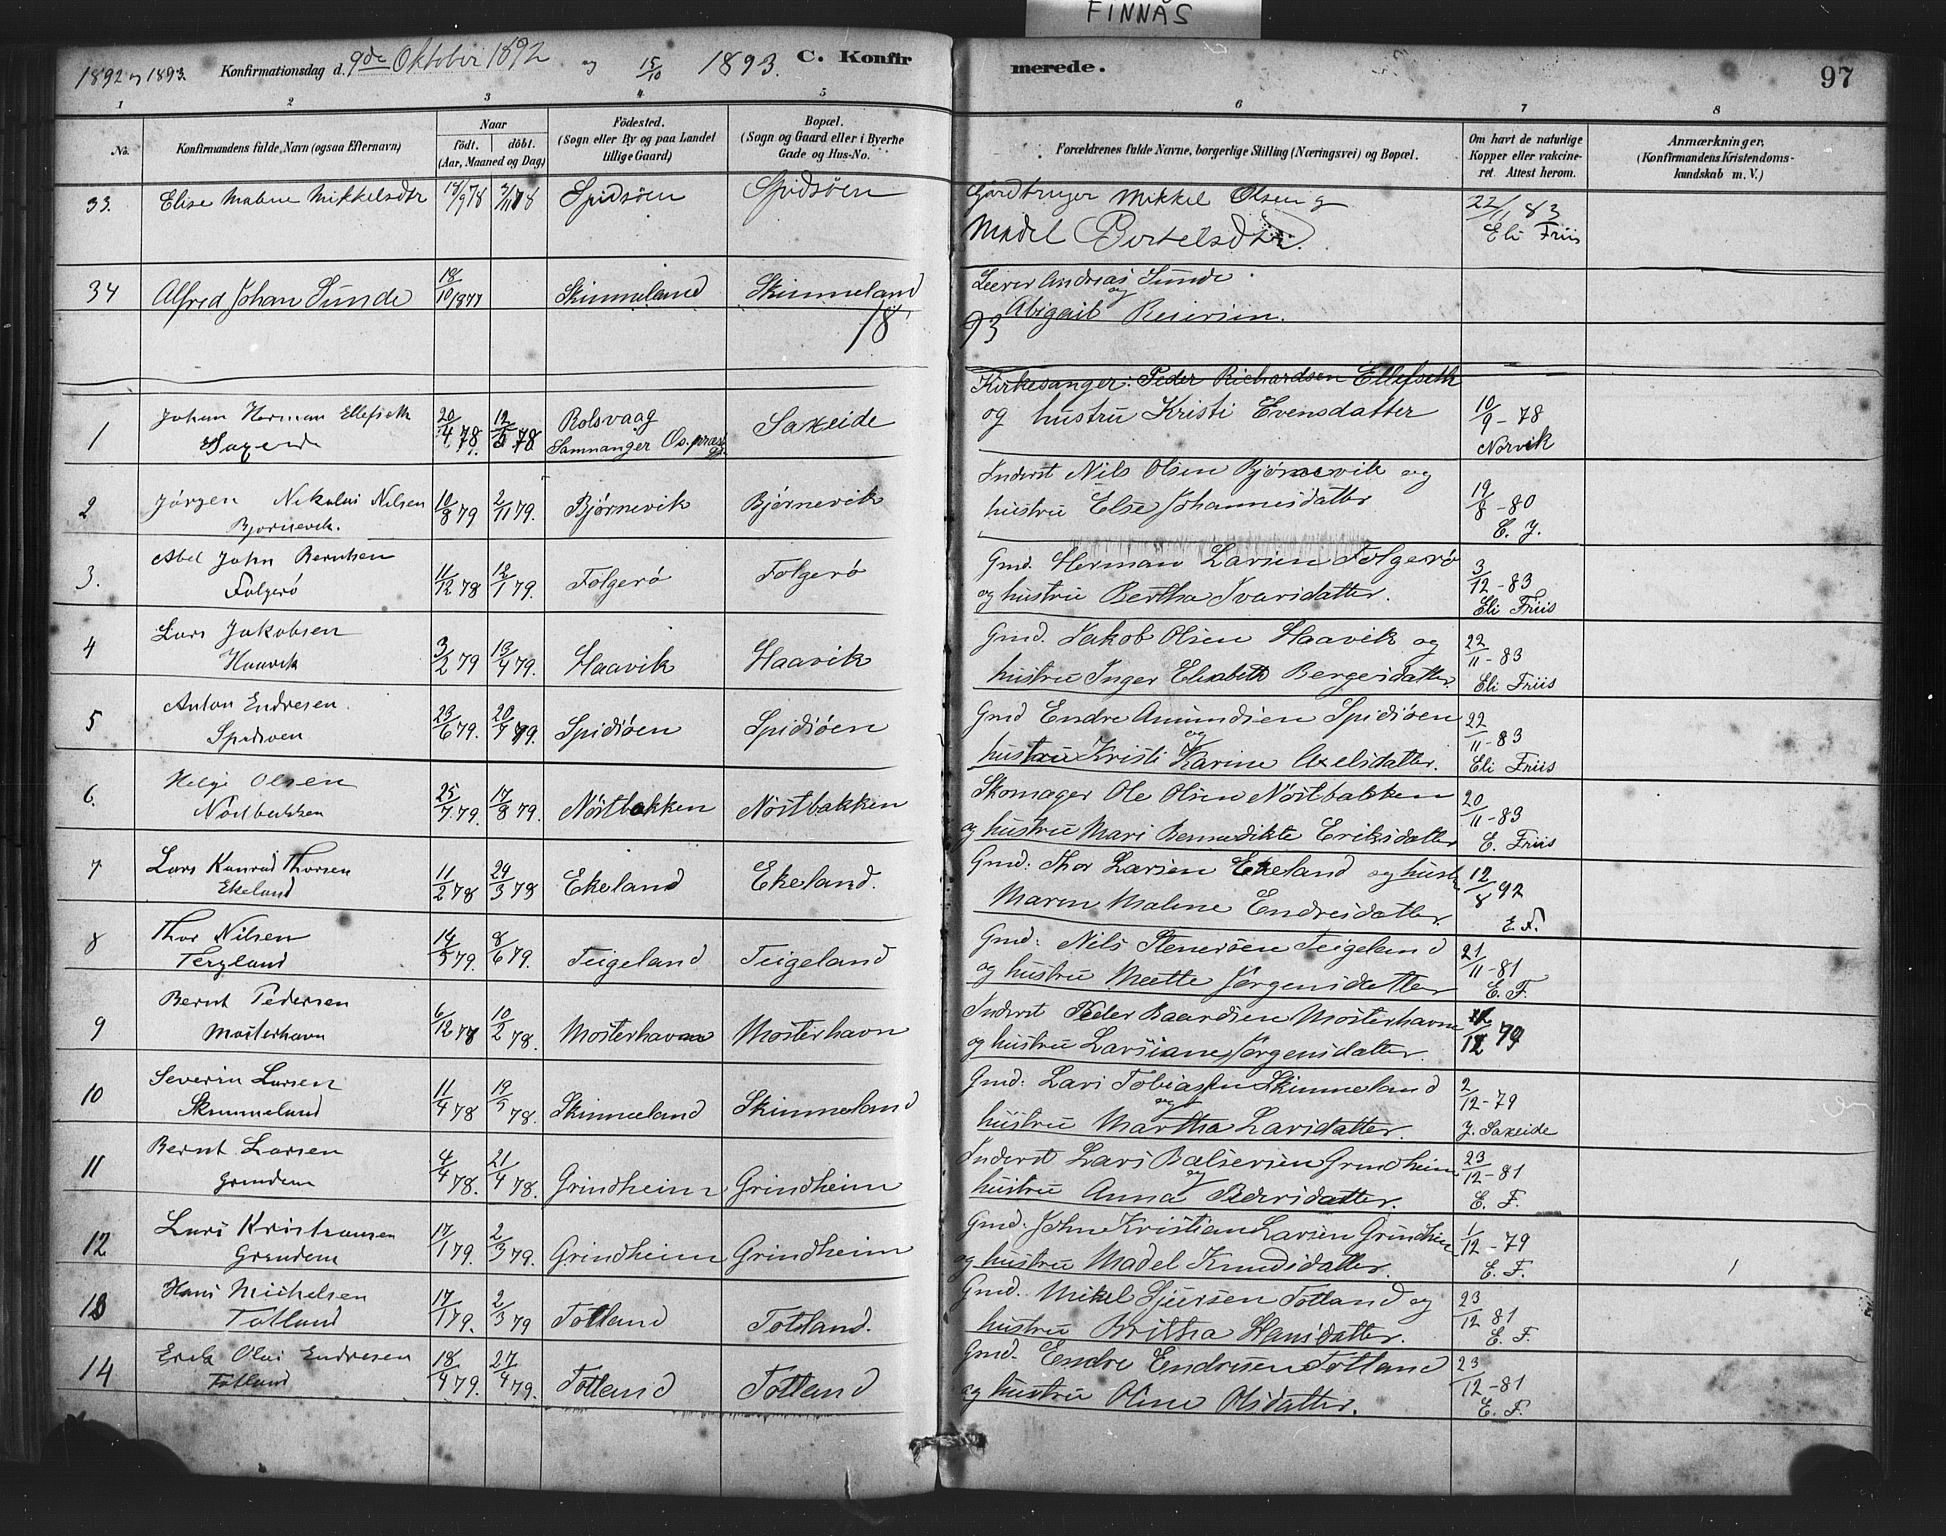 FINNÅS
1892 og 1893. Konfirmationsdag d. 9de Oktober 1892 og 15/10 1893. C. Konfir
merede. 97
1 2 3 4 5 6 7 8
No. Konfirmandens fulde Navn (ogsaa Efternavn)
Naar
födt. döbt.
(Aar, Maaned og Dag)
Födested.
(Sogn eller By og paa Landet
tillige Gaard)
Bopæl.
(Sogn og Gaard eller i Byerne
Gade og Hus-No.
Forældrenes fulde Navne, borgerlige Stilling (Næringsvei) og Bopæl.
Om havt de naturlige
Kopper eller vakcine-
ret. Attest herom.
Anmærkninger,
(Konfirmandens Kristendoms-
kundskab m. V.)
33. Elise Malene Mikkelsdtr Spidsöen Spidsöen
Gardbruger Mikkel Olsen og
Madel Bertelsdtr. 22/1 83
Eli Friis
34 Alfred Johan Sunde 18/10 1877 Skimmeland Skimmeland
Andreas Sunde
og
Abigail
18 93
Kirkesanger: Peder Richardsen Ellefseth
1 Johan Herman Ellefseth 20/4 78. 12/5 78 Rolsvaag Saxeide
Samnanger Os. præst
og hustru Kristi Evensdatter 10/9-78
Norvik
2 Jörgen Nikolai Nilsen 10/8 79 2/11 79. Bjørnevik Bjørnevik
Bjørnevik.
Inderst Nils Olsen Bjørnevik og
hustru Else Johannesdatter 19/8-80
E. J.
3. Abel John Berntsen 11/12 78 12/1 79. Folgerö Folgerö
Folgerö
Gmd. Herman Larsen Folgerö
og hustru Bertha Ivarsdatter. 3/12-83
Eli Friis
4 Lars Jakobsen 3/2 79 13/4 79. Haavik Haavik
Haavik
Gmd. Jakob Olsen Haavik og
hustru Inger Elisabeth Bergesdatter. 22/11-83
Eli Friis
5 Anton Endresen 23/6 79. 20/7 79. Spidsöen Spidsöen
Spidsöen
Gmd Endre Amundsen Spidsöen
og
hustru Kristi Karine Axelsdatter. 22/11-83
Eli Friis
6. Helge Olsen 25/7 79. 17/8 79. Nöstbakken Nöstbakken
Nöstbakken
Skomager Ole Olsen Nöstbakken
og hustru Mari Bernedikte Eriksdatter 20/11-83
E. Friis
7 Lars Konrad Thorsen 11/2 78 24/3 78 Ekeland Ekeland.
Ekeland
Gmd: Thor Larsen Ekeland og hustru
Maren Malene Endresdatter. 12/8 92
E F.
8 Thor Nilsen 14/5 79. 8/6 79. Teigeland Teigeland
Teigland
Gmd: Nils Stenersen Teigeland
og hustru Mette Jörgensdatter 21/11-81
E. F.
9 Bernt Pedersen 6/12 78 10/2 78. Mosterhavn Mosterhavn
Mosterhavn
Inderst Peder Baardsen Mosterhavn
og hustru Larsiane Jörgensdatter. 12 79
10 Severin Larsen 11/4 78 19/5 78. Skimmeland Skimmeland
Skimmeland
Gmd: Lars Tobiassen Skimmeland
og
hustru Martha Larsdatter. 2/12-79
J. Saxeide
11 Bernt Larsen 4/4 78. 21/4 78. Grindheim Grindheim
Grindem
Inderst Lars Balsersen Grindheim
og
hustru Anna Pedersdatter. 23/12-81
E. F.
12 Lars Kristiansen 17/1 79. 2/3 79. Grindheim Grindheim
Grindem
Gmd. John Kristian Larsen Grindheim
og hustru Madel Knudsdatter. 1/12-79
E. F.
13 Hans Michelsen 17/1 79. 2/3 79 Totland Totland.
Totland
Gmd. Mikel Sjursen Totland og
hustru Britha Hansdatter. 23/12 81
E. F.
14 Erik Olai Endresen 18/4 79. 27/4 79. Totland Totland
Totland
Gmd. Endre Endresen Totland
og hustru Oline Olsdatter. 23/12-81
E. F.